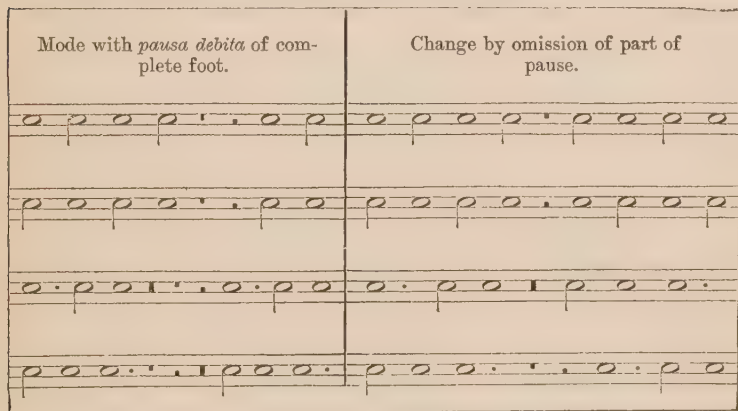 Mode with pausa debita of com-
plete foot.
Change by omission of part of
pause.